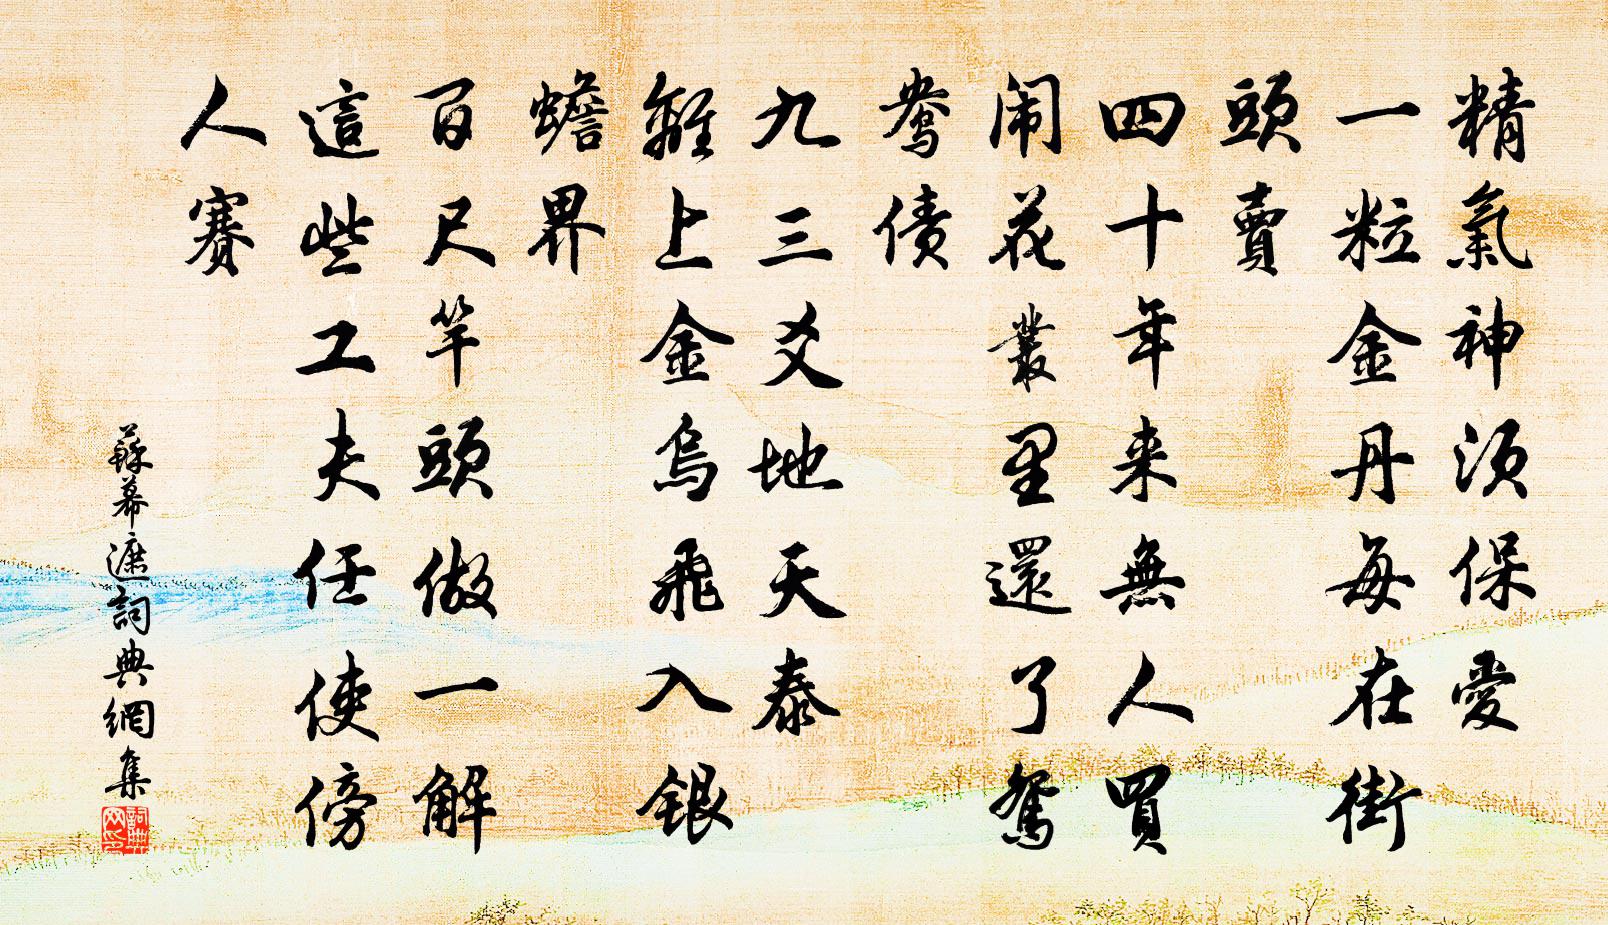 精氣神須保愛
一粒金丹每在街
頭賣
四十年来無人買
闹花叢里還了鴛
鸯债
九三爻地天泰
離上金烏飛入银
蟾界
百尺竿頭做一解
這些工夫任使傍
人賽
蘇幕遮詞典網集
詞典
网印